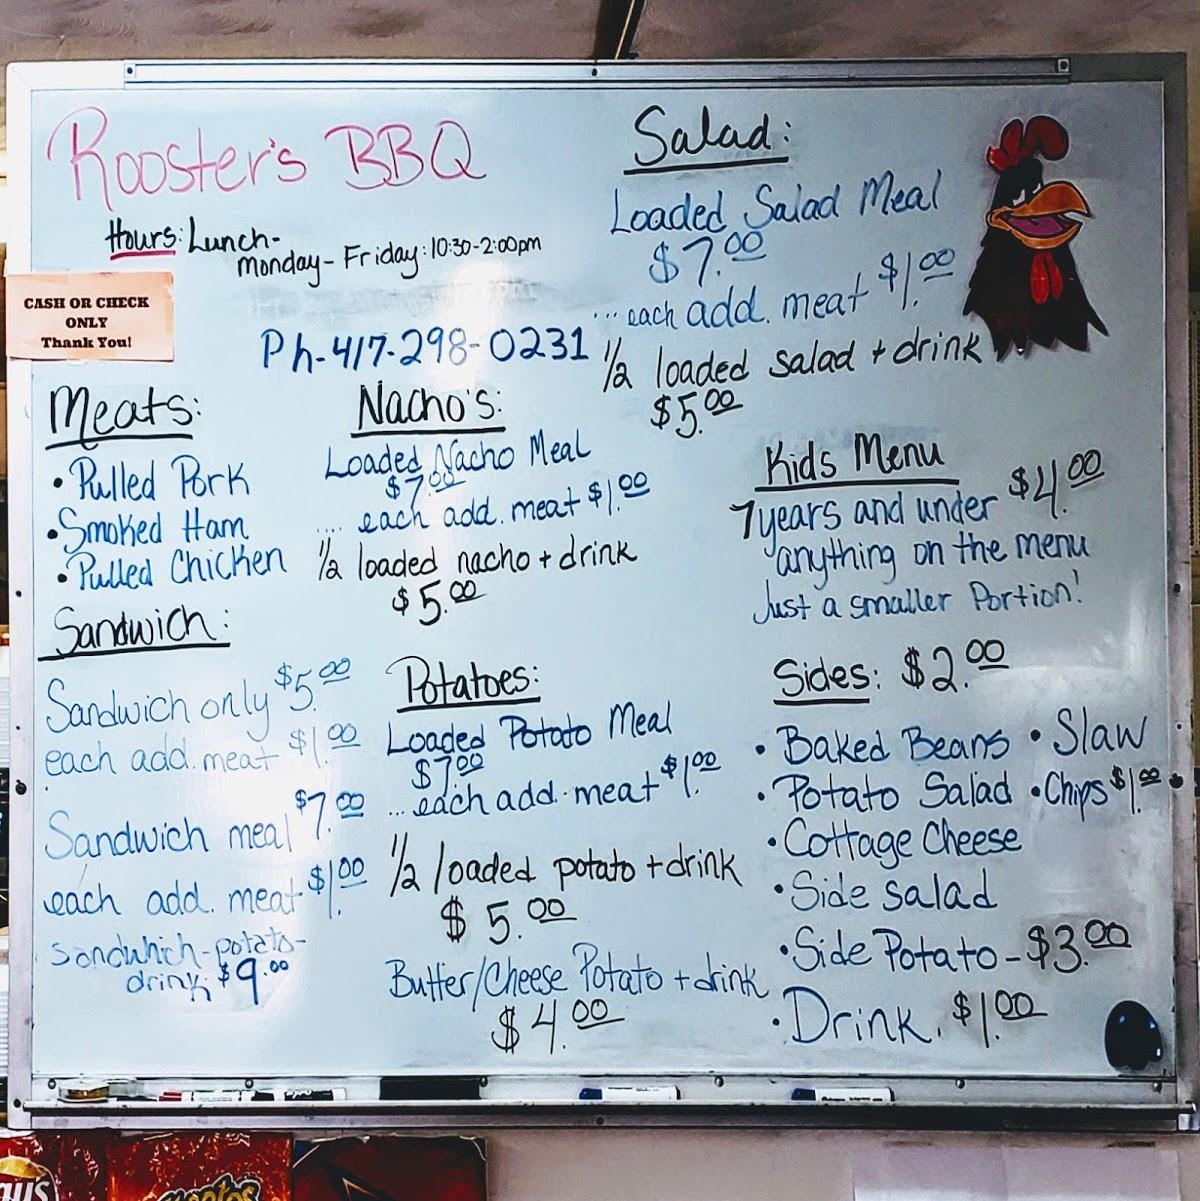 Rooster's BBQ
Hours: Lunch-
Monday-Friday: 10:30-2:00pm
CASH OR CHECK
ONLY
Thank You!
Ph-417-298-0231
Salad:
Loaded Salad Meal
$7.00
... each add. meat $1.00
1/2 loaded salad + drink
$5.00
Meats:
• Pulled Pork
• Smoked Ham
• Pulled Chicken
Nacho's:
Loaded Nacho Meal
$7.00
.... each add. meat $1.00
1/2 loaded nacho + drink
$5.00
Kids Menu
7 years and under $4.00
anything on the menu
Just a smaller Portion!
Sandwich:
Sandwich only $5.00
each add. meat $1.00
Sandwich meal $7.00
each add. meat $1.00
Sandwhich-potato-
drink; $9.00
Potatoes:
Loaded Potato Meal
$7.00
...each add. meat $1.00
1/2 loaded potato + drink
$5.00
Butter/Cheese Potato + drink
$4.00
Sides: $2.00
• Baked Beans • Slaw
• Potato Salad • Chips $1.00
• Cottage Cheese
• Side salad
• Side Potato - $3.00
• Drink. $1.00